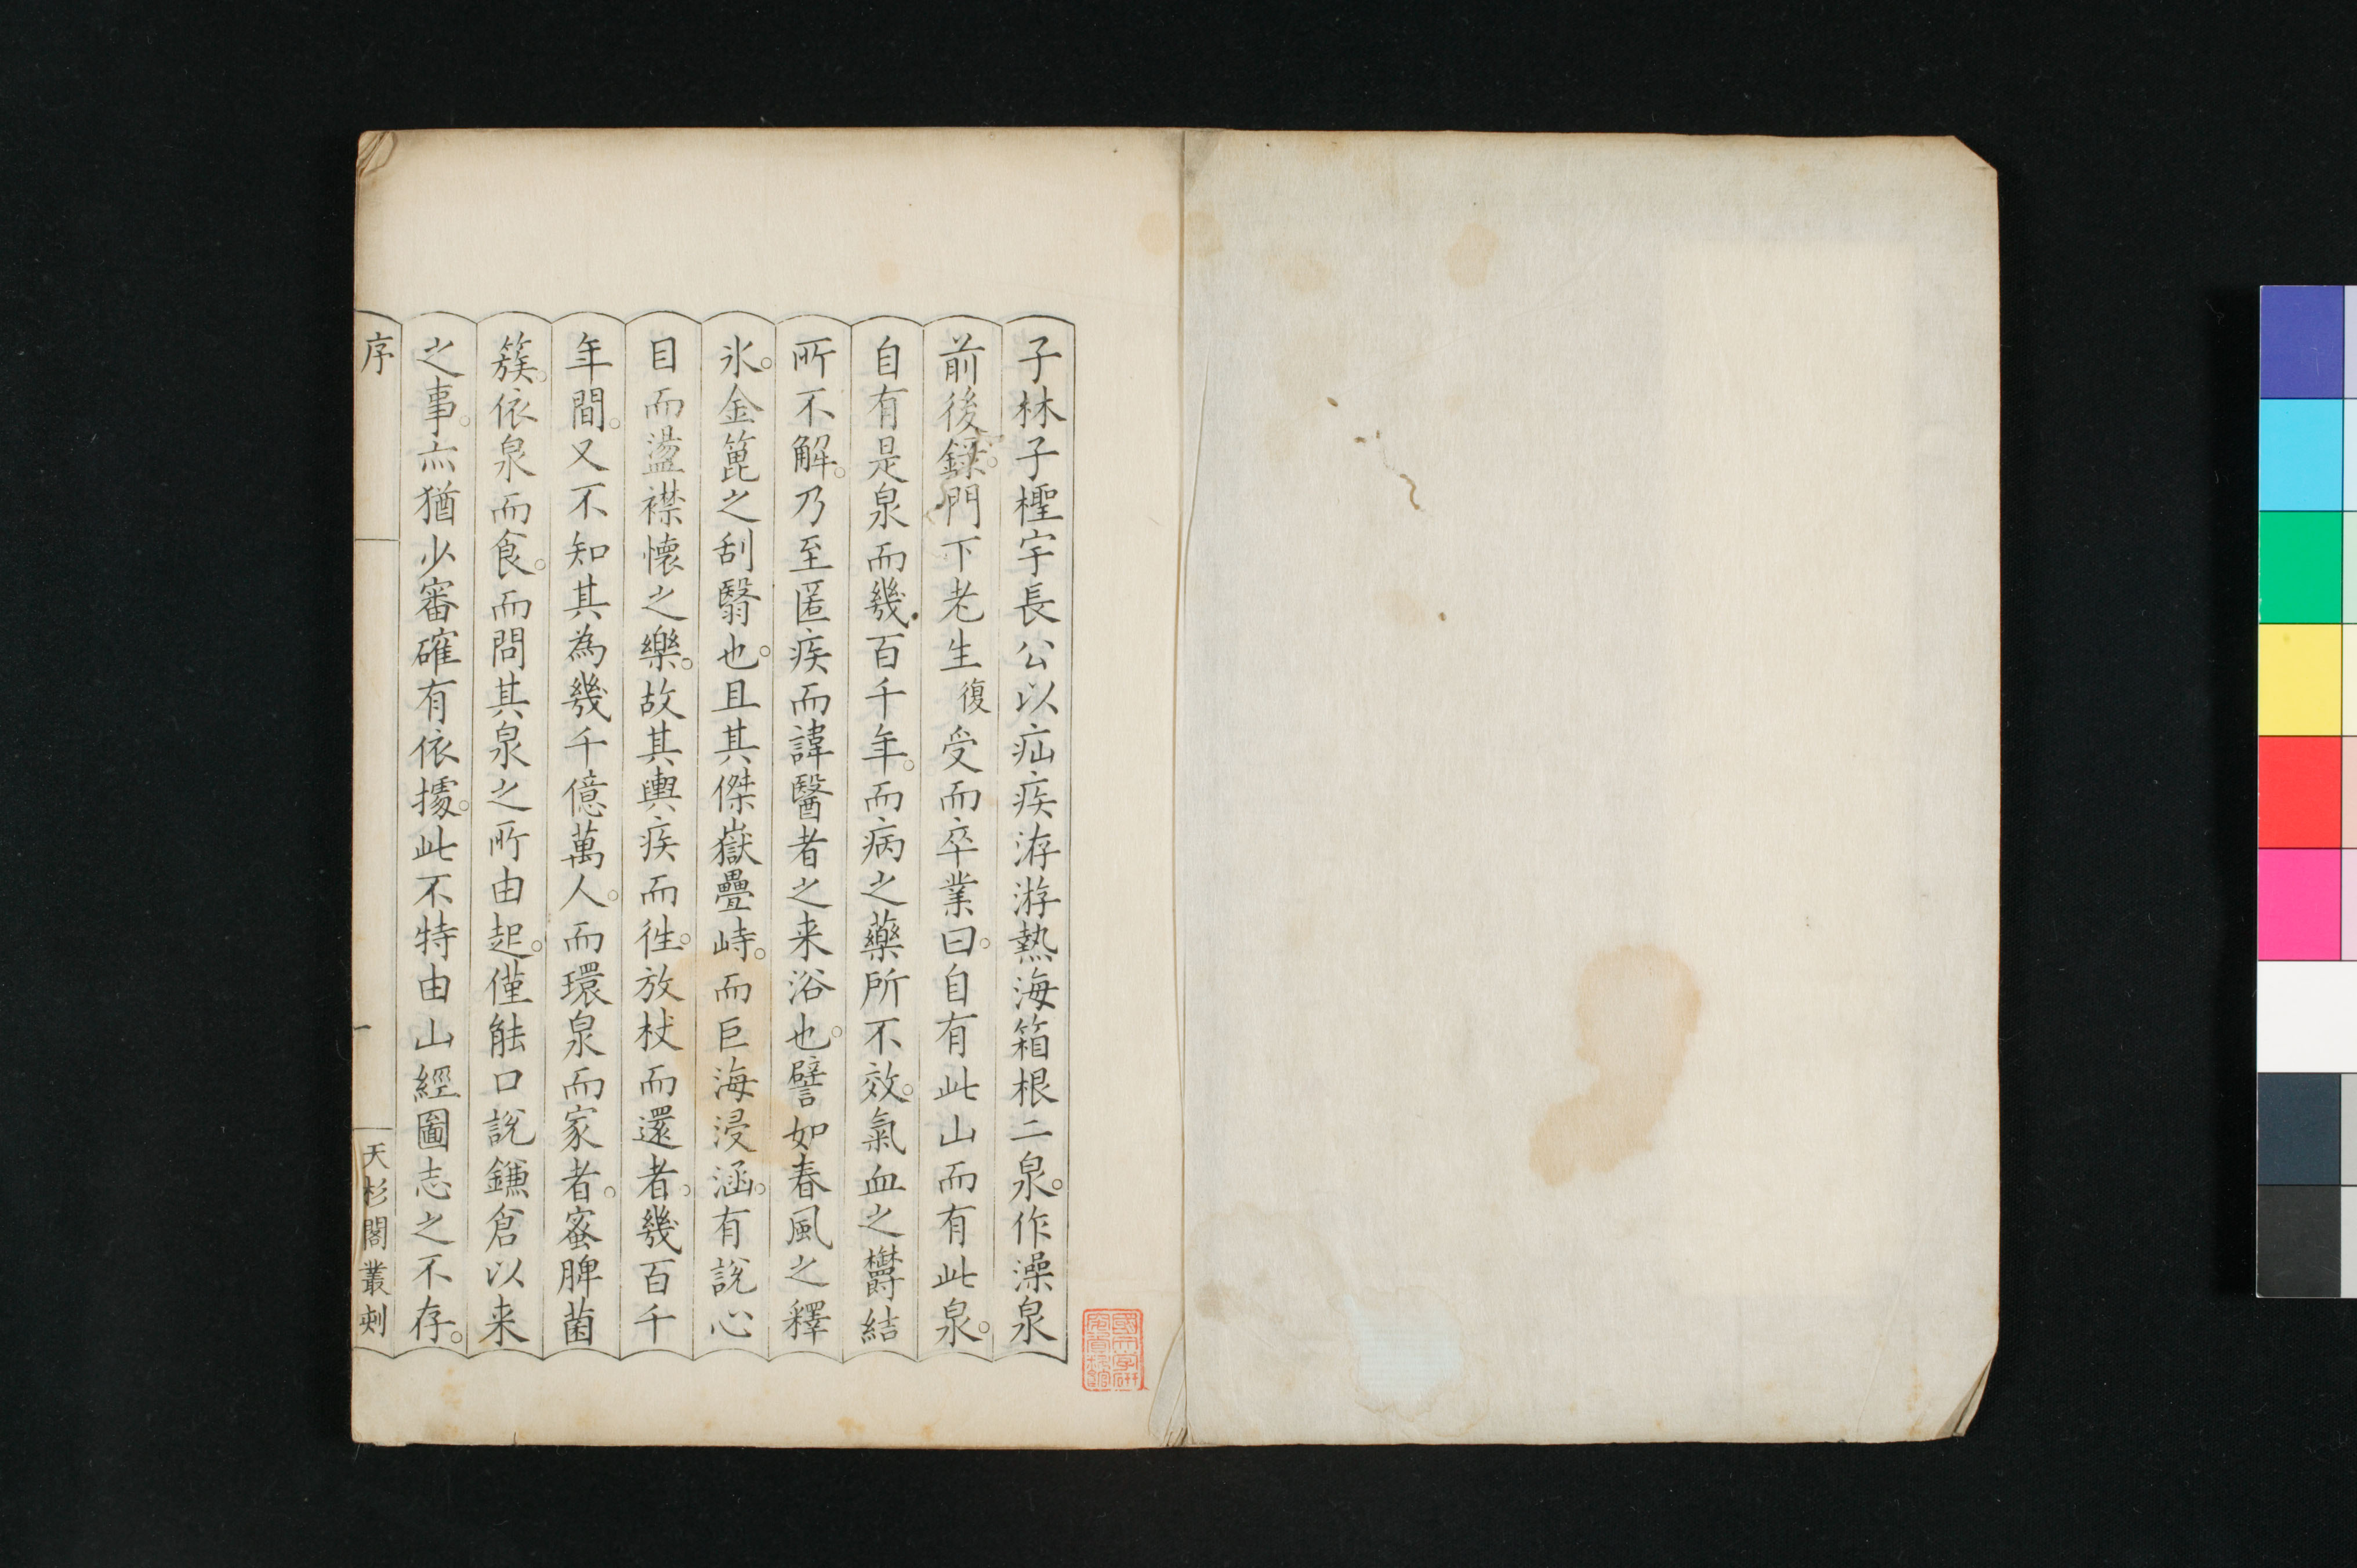 子林子檉宇長公以疝疾洊游熱海箱根二泉。作澡泉
前後錄。門下老生復受而卒業曰。自有此山而有此泉。
自有是泉而幾百千年。而病之藥所不效。氣血之欝結
所不解。乃至匿疾而諱醫者之来浴也。譬如春風之釋
氷。金篦之刮翳也。且其傑嶽疊峙。而巨海浸涵。有說心
目而盪襟懷之樂。故其輿疾而徃。放杖而還者。幾百千
年間。又不知其為幾千億萬人。而環泉而家者。蜜脾菌
簇。依泉而食。而問其泉之所由起。僅能口說鎌倉以来
之事。亦猶少審確有依據。此不特由山經圖志之不存。
序
一
天杉閣叢刻
國文學研究資料館